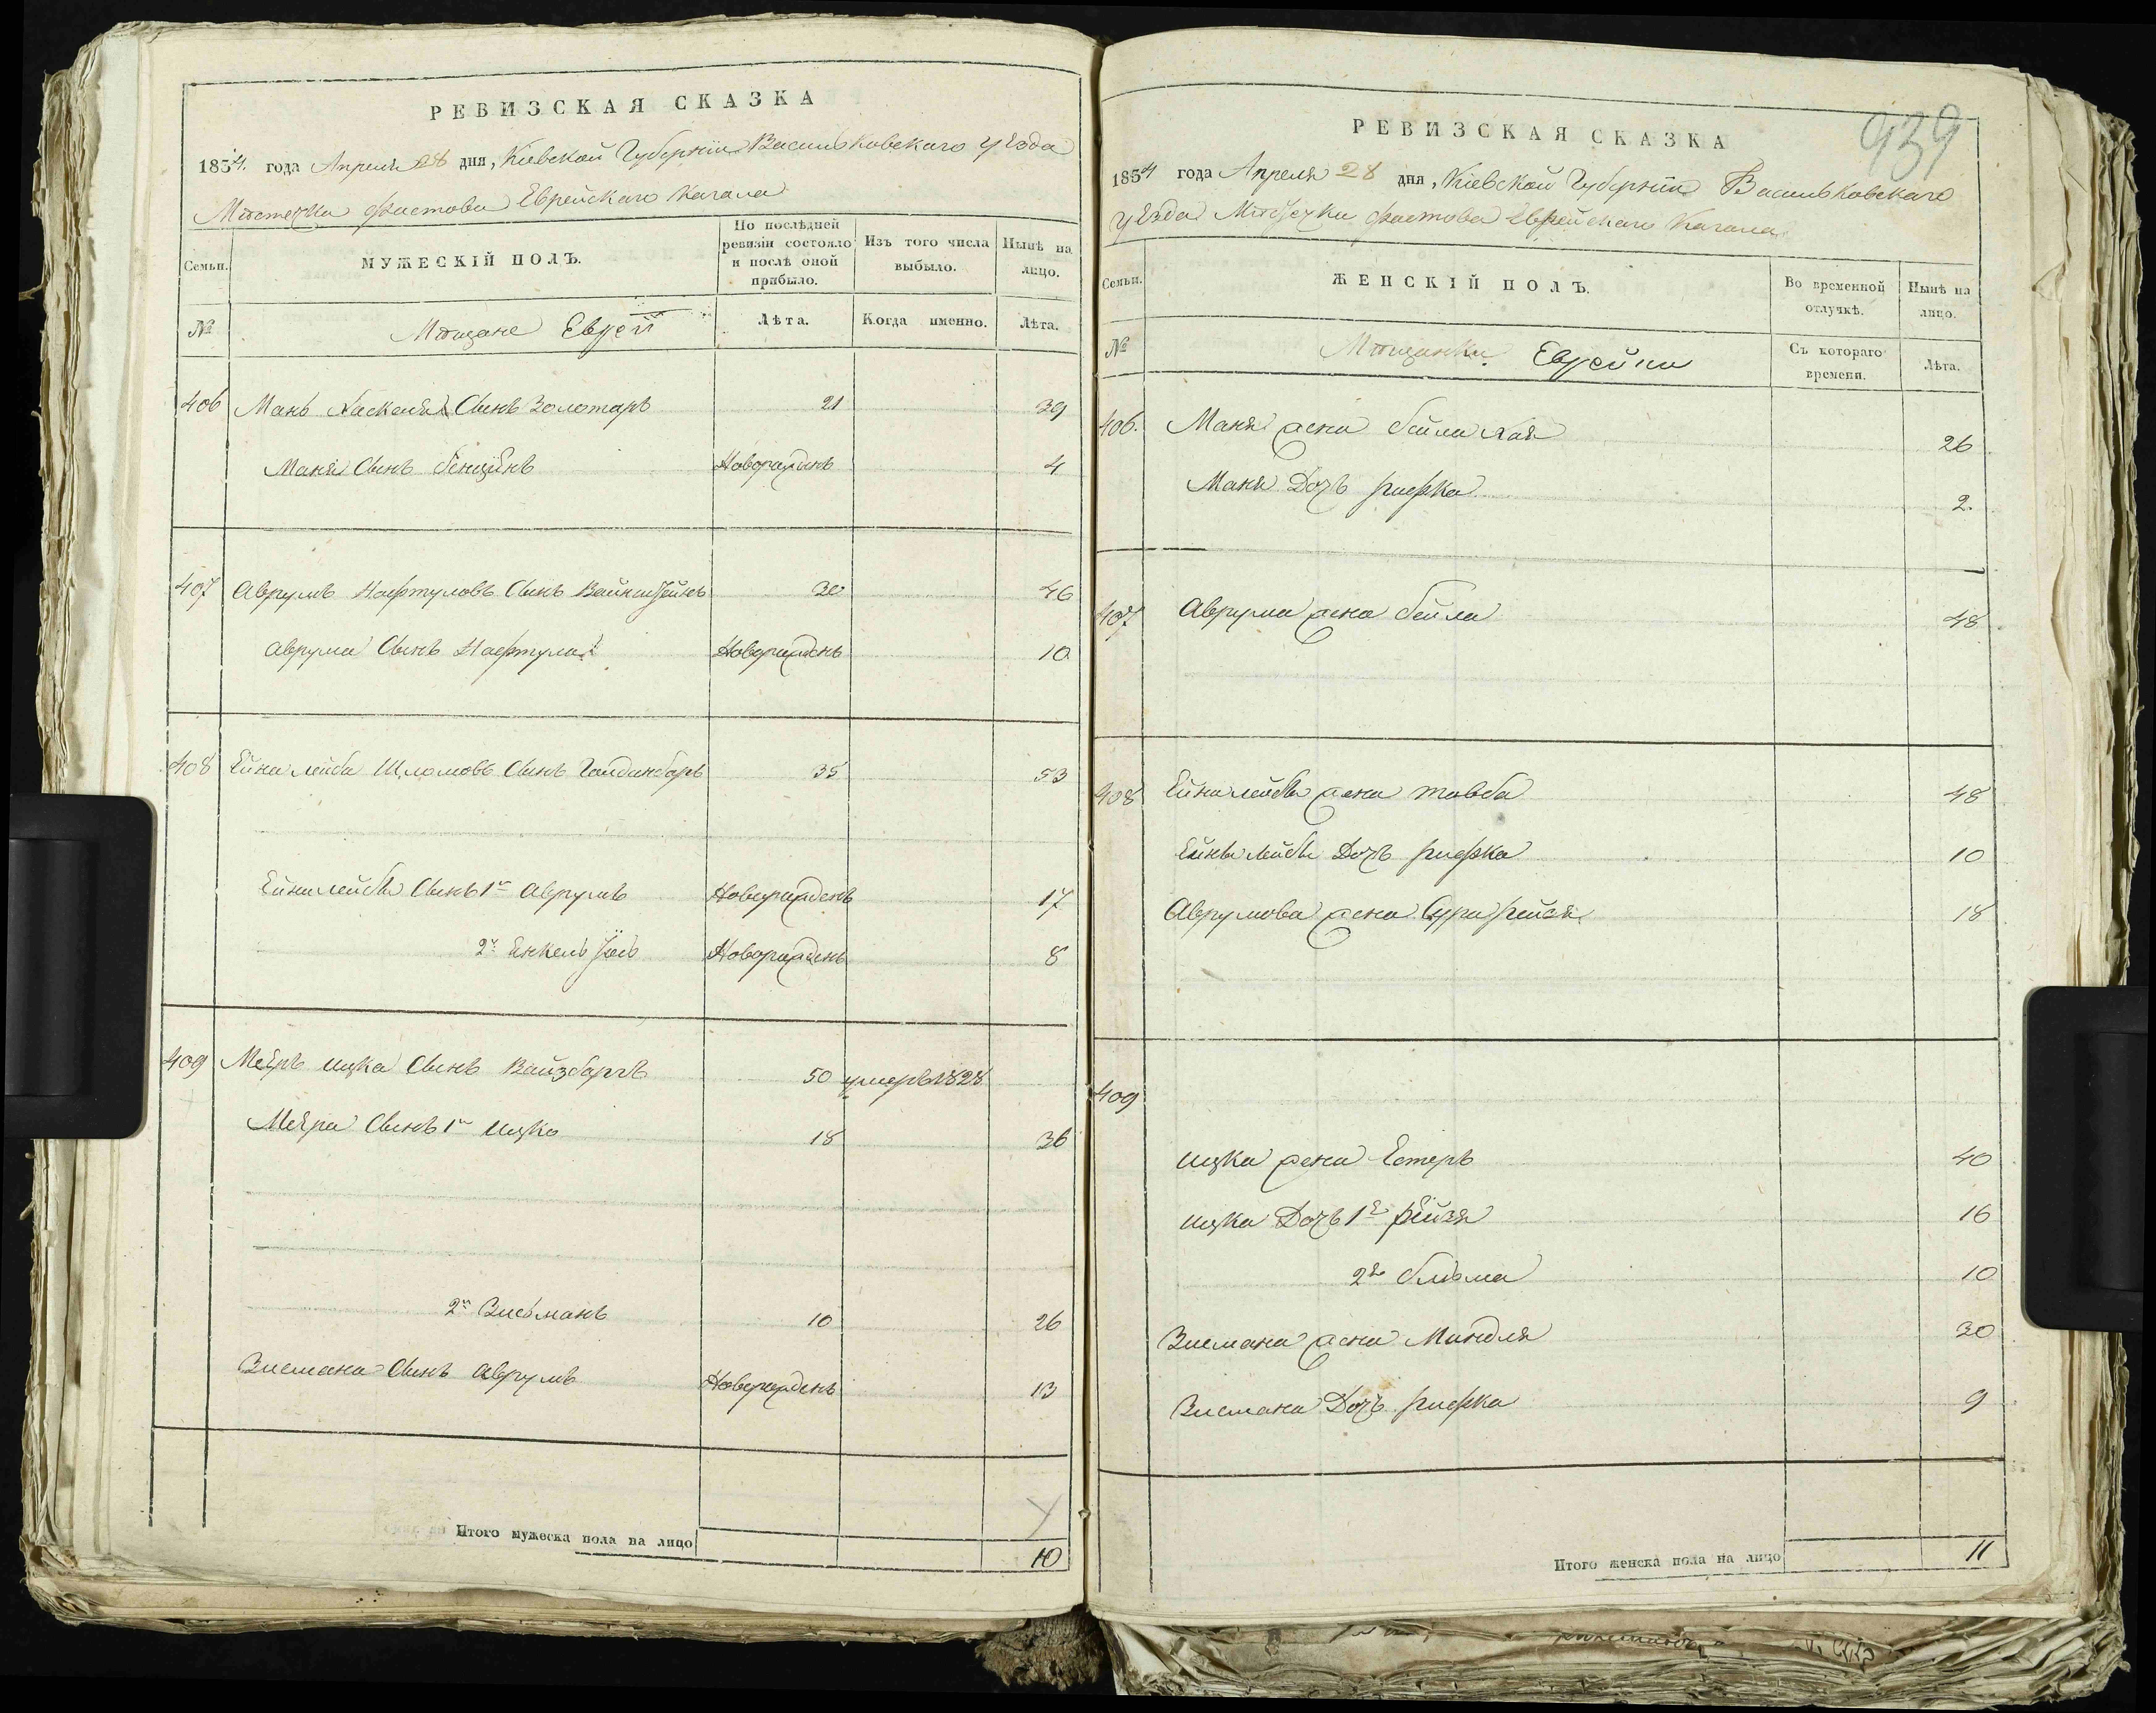 РЕВИЗСКАЯ СКАЗКА
1854. года Апреля 28 дня, Кіевской Губерніи Васильковскаго уѣзда
Мѣстечка Фастова Еврейскаго Кагала
Семьи.
МУЖЕСКІЙ ПОЛЪ.
По послѣдней ревизіи состояло и послѣ оной прибыло.
Изъ того числа выбыло.
Нынѣ на лицо.
№
Мѣщане Евреи
Лѣта.
Когда именно.
Лѣта.
406 Мань Хаскеля Сынъ Золотарь 21 39
Маня Сынъ Бенціёнъ Новорожденъ 4
407 Аврумъ Нафтуловъ Сынъ 30 46
Аврума Сынъ Нафтула Новорожденъ 10
408 Ейна Лейба Шломовъ Сынъ 35 53
Ейни Лейбы Сынъ 1й Аврумъ Новорожденъ 17
2й Янкель Новорожденъ 8
409 Меѣръ Ицка Сынъ Вайзбаргъ 50 умеръ 1828
Меѣра Сынъ 1й Ицко 18 36
2й Зисьманъ 10 26
Зисмана Сынъ Аврумъ Новорожденъ 13
Итого мужеска пола на лицо 10
939
РЕВИЗСКАЯ СКАЗКА
1854 года Апреля 28 дня, Кіевской Губерніи Васильковскаго
уѣзда Мѣстечка Фастова Еврейскаго Кагала
Семьи.
ЖЕНСКІЙ ПОЛЪ.
Во временной отлучкѣ.
Нынѣ на лицо.
№
Мѣщанки Еврейки
Съ котораго времени.
Лѣта.
406. Маня жена Бейла Хая 26
Маня Дочь Рифка 2.
407 Аврума жена Бейла 48
408 Ейни Лейбы жена Товба 48
Ейны Лейбы Дочь Рифка 10
Аврумова жена Сура Рейся 18
409
Ицка жена Естеръ 40
Ицка Дочь 1я Рейзя 16
2я Блюма 10
Зисмана жена Миндля 30
Зисмана Дочь Рифка 9
Итого женска пола на лицо 11